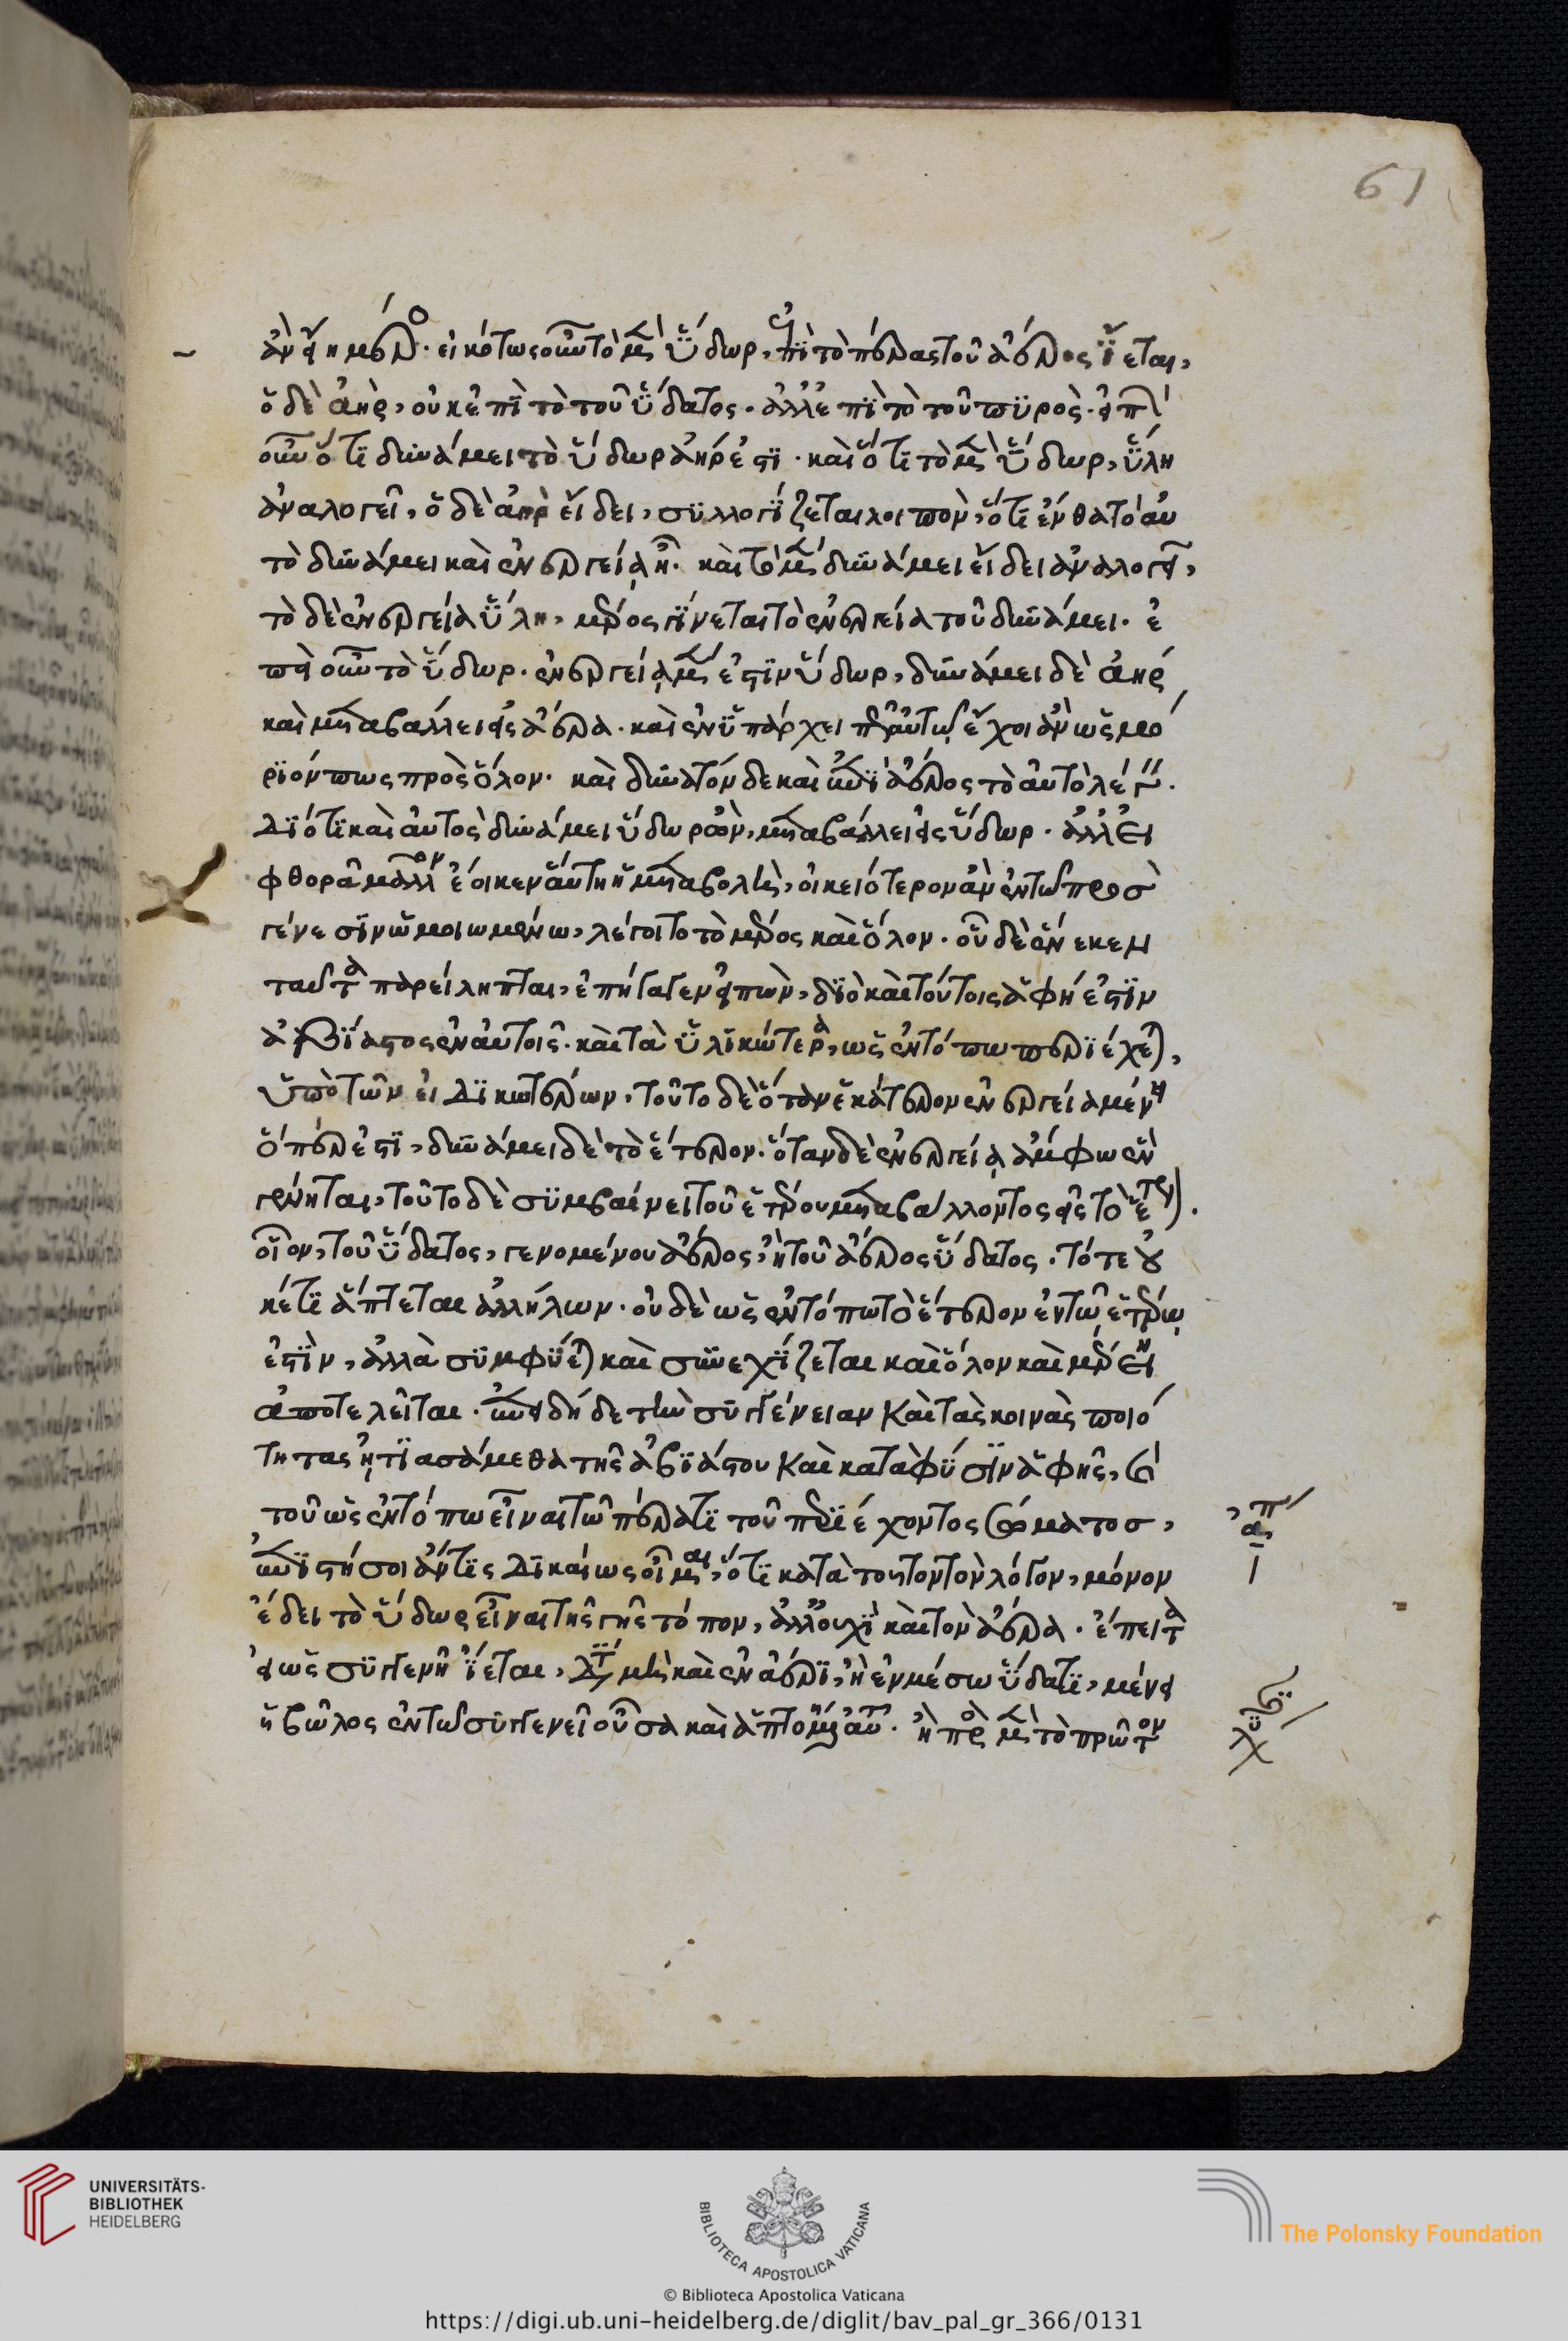 61
ἂν εἴη μέρος. εἰκότως οὖν τὸ μὲν ὕδωρ, ἐπὶ τὸ πέρας τοῦ ἀέρος ἵεται,
ὁ δὲ ἀὴρ, οὐκ ἐπὶ τὸ τοῦ ὕδατος. ἀλλ' ἐπὶ τὸ τοῦ πυρὸς. ἐπεὶ
οὖν ὅτι δυνάμει τὸ ὕδωρ ἀήρ ἐστι. καὶ ὅτι τὸ μὲν ὕδωρ, ὕλη
ἀναλογεῖ, ὁ δὲ ἀὴρ εἴδει, συλλογίζεται λοιπὸν, ὅτι ἔνθα τὸ αὐ
τὸ δυνάμει καὶ ἐνεργείᾳ ἦ. καὶ τὸ μὲν δυνάμει εἴδει ἀναλογεῖ,
τὸ δὲ ἐνεργεία ὕλη, μέρος γίνεται τὸ ἐνεργεία τοῦ δυνάμει. ἐ
πεὶ οὖν τὸ ὕδωρ. ἐνεργείᾳ μὲν ἐστὶν ὕδωρ, δυνάμει δὲ ἀὴρ
καὶ μεταβάλλει εἰς ἀέρα. καὶ ἐνυπάρχει παρ' αὐτῷ ἔχοι ἂν ὡς μό
ριόν πως πρὸς ὅλον. καὶ δυνατόν δε καὶ ἐπὶ ἀέρος τὸ αὐτὸ λέγειν.
Διότι καὶ αὐτὸς δυνάμει ὕδωρ ὢν, μεταβάλλει εἰς ὕδωρ. ἀλλ' ἐπεὶ
φθορᾶ μᾶλλον ἔοικεν αὕτη ἡ μεταβολὴ, οἰκειότερον ἂν ἐν τῶ προσ
γένεσιν ὡμοιωμένω, λέγοιτο τὸ μέρος καὶ ὅλον. οὗ δὲ ἕνεκεν
ταῦτα παρείληπται, ἐπήγαγεν εἰπὼν, διὸ καὶ τούτοις ἁφή ἐστὶν
ἀβίαστος ἐν αὐτοῖς. καὶ τὰ ὑλικώτερα, ὡς ἐν τόπω περιέχεται,
ὑπὸ τῶν εἰδικωτέρων. τοῦτο δὲ ὅταν ἑκάτερον ἐνεργεία μένῃ
ὅπερ ἐστὶ, δυνάμει δὲ τὸ ἕτερον. ὅταν δὲ ἐνεργείᾳ ἄμφω ἓν
γένηται, τοῦτο δὲ συμβαίνει τοῦ ἑτέρου μεταβάλλοντος εἰς τὸ ἕτερον.
οἷον, τοῦ ὕδατος, γενομένου ἀέρος, ἢ τοῦ ἀέρος ὕδατος. τότε οὐ
κέτι ἅπτεται ἀλλήλων. οὐδὲ ὡς ἐν τόπω τὸ ἕτερον ἐν τῷ ἑτέρῳ
ἐστὶν, ἀλλὰ συμφύεται καὶ συνεχίζεται καὶ ὅλον καὶ μέρος
ἀποτελεῖται. ἐπειδή δε τὴν συγγένειαν καὶ τὰς κοινὰς ποιό
τητας ᾐτιασάμεθα τῆς ἀβιάστου καὶ κατὰ φύσιν ἁφῆς, καὶ
τοῦ ὡς ἐν τόπω εἶναι τῶ πέρατι τοῦ περιέχοντος σώματος,
ἐπιστήσοι ἄν τις δικαίως οἶμαι, ὅτι κατὰ τουτονὶ τὸν λόγον, μόνον
ἔδει τὸ ὕδωρ εἶναι τῆς γῆς τόπον, ἀλλ' οὐχὶ καὶ τὸν ἀέρα. ἔπειτα
εἰ ὡς συγγενῆ ἵεται, διατί μὴ καὶ ἐν ἀέρι, ἢ ἐν μέσω ὕδατι, μένει
ἡ βῶλος ἐν τῶ συγγενεῖ οὖσα καὶ ἁπτομένη αὐτοῦ. ἢ πρὸς μὲν τὸ πρῶτον
UNIVERSITÄTS-
BIBLIOTHEK
HEIDELBERG
BIBLIOTECA APOSTOLICA VATICANA
© Biblioteca Apostolica Vaticana
The Polonsky Foundation
https://digi.ub.uni-heidelberg.de/diglit/bav_pal_gr_366/0131